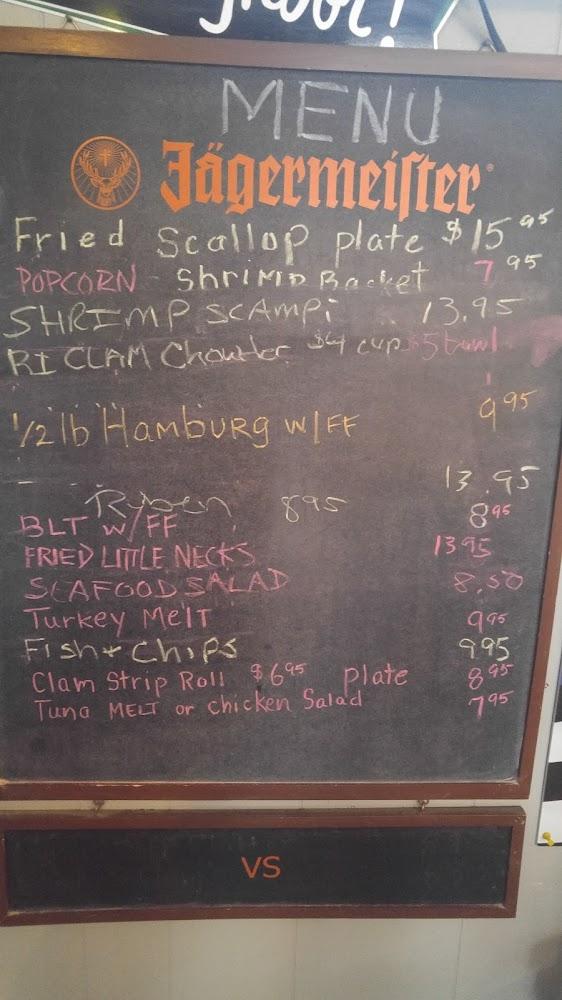 MENU
Jägermeister
Fried Scallop plate $15.95
POPCORN Shrimp Basket 7.95
SHRIMP SCAMPi 13.95
RI CLAM Chowder $4 cup $5 bowl
1/2 lb HAMBURG W/FF 9.95
13.95
Ruben 8.95
BLT W/FF 8.95
FRIED LITTLE NECKS 13.95
SEAFOOD SALAD 8.50
Turkey MelT 9.95
Fish + Chips 9.95
Clam Strip Roll $6.95 plate 8.95
Tuna MELT or chicken Salad 7.95
VS